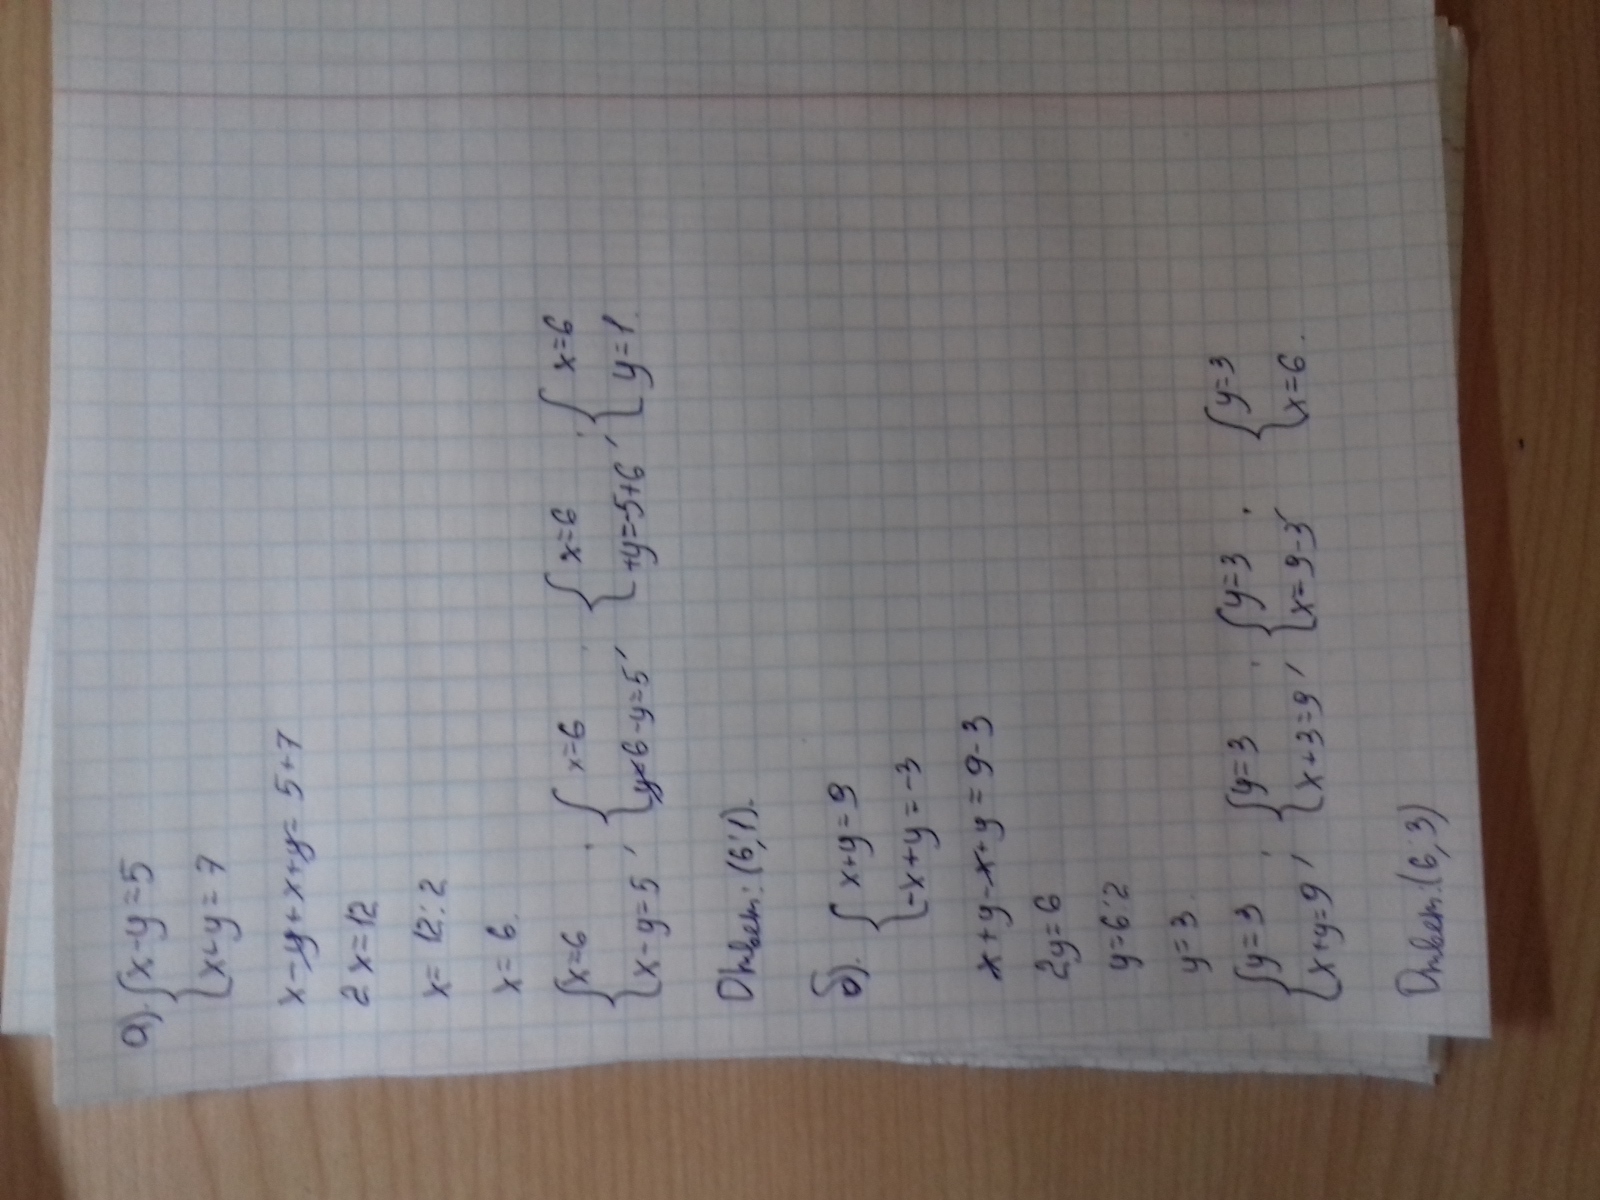 а). { x-y=5
{ x+y=7
x-y+x+y=5+7
2x=12
x=12:2
x=6.
{ x=6 ; { x=6 ; { x=6 ; { x=6
{ x-y=5 , { 6-y=5 , { +y=-5+6 , { y=1.
Ответ: (6;1).
б). { x+y=9
{ -x+y=-3
x+y-x+y=9-3
2y=6
y=6:2
y=3.
{ y=3 ; { y=3 ; { y=3 ; { y=3
{ x+y=9 , { x+3=9 , { x=9-3 , { x=6.
Ответ: (6;3)